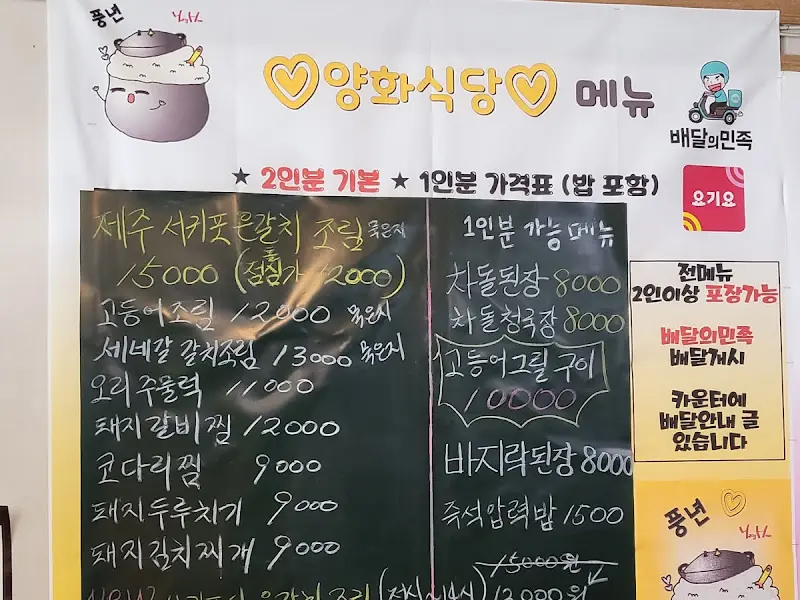 풍년
♡양화식당♡ 메뉴
배달의민족
★ 2인분 기본 ★ 1인분 가격표 (밥 포함)
요기요
제주 서키포 은갈치 조림 묵은지
15000 (점심가 12000)
고등어조림 12000 묵은지
세네갈 갈치조림 13000 묵은지
오리주물럭 11000
돼지갈비찜 12000
코다리찜 9000
돼지두루치기 9000
돼지김치찌개 9000
1인분 가능메뉴
차돌된장 8000
차돌청국장 8000
고등어그릴구이
10000
바지락된장 8000
즉석압력밥 1500
15000원
전메뉴
2인이상 포장가능
배달의민족
배달개시
카운터에
배달안내 글
있습니다
풍년